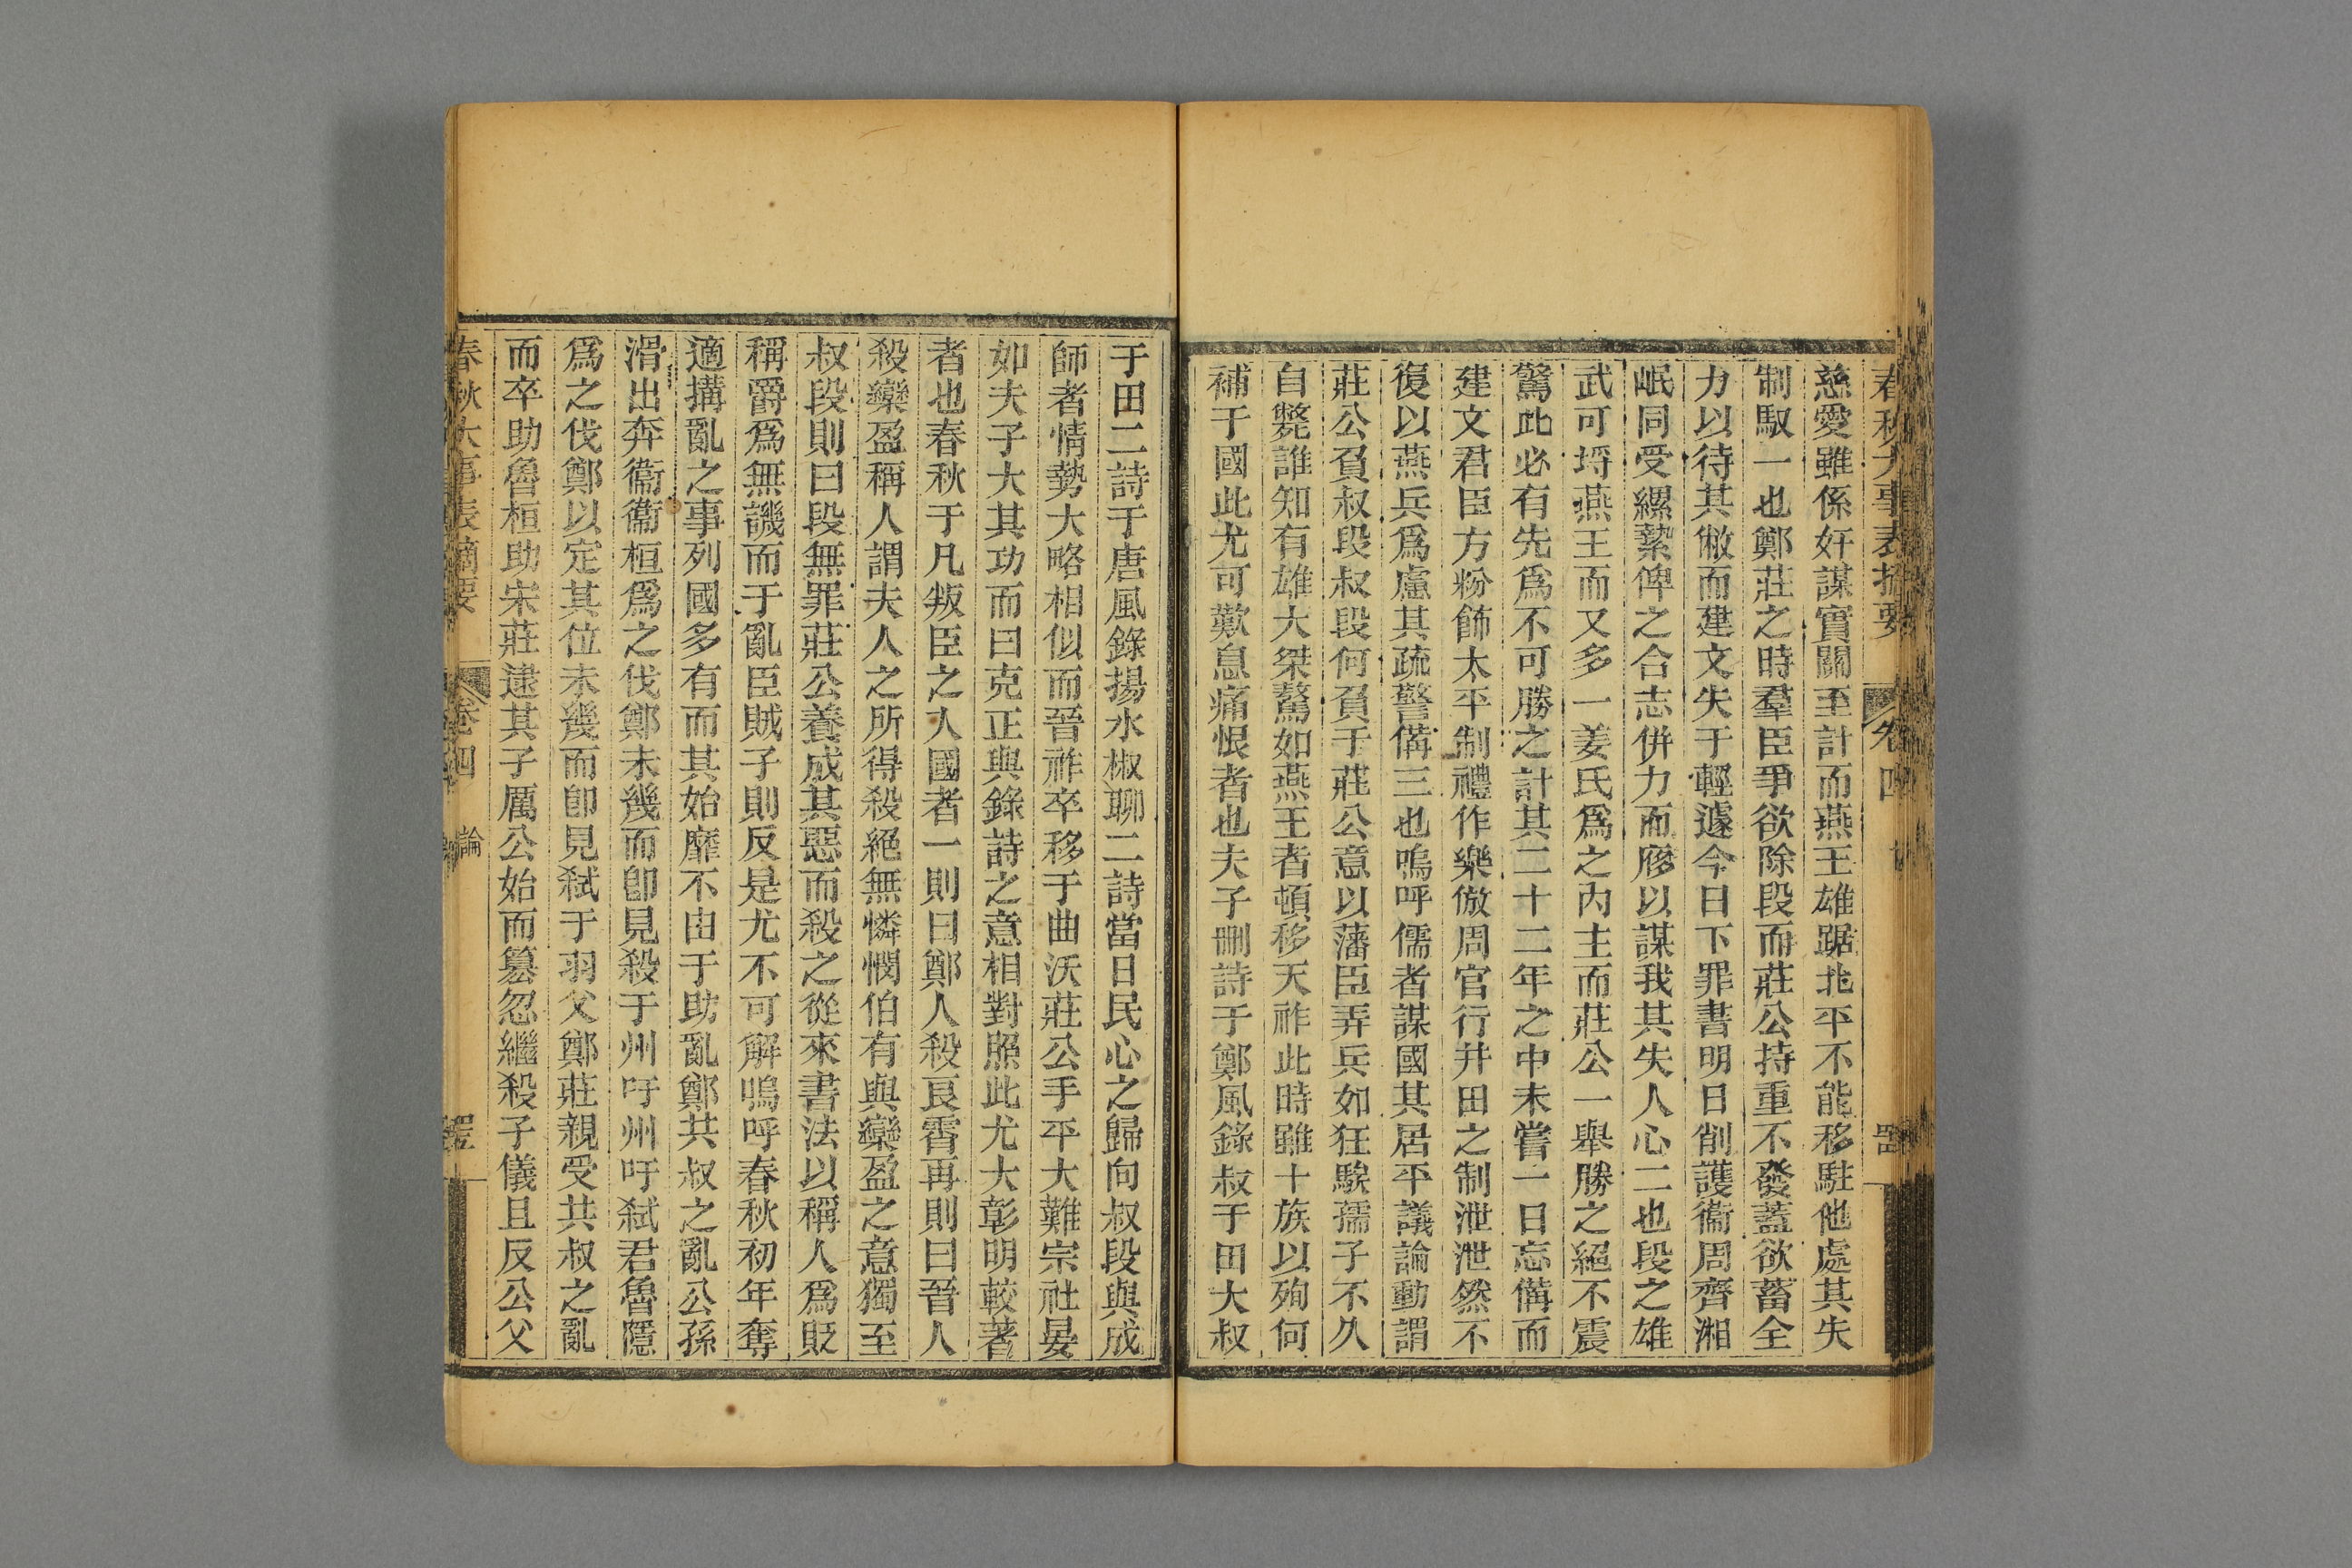 春秋大事表摘要 卷四
慈愛雖係奸謀實關至計而燕王雄踞北平不能移駐他處其失
制馭一也鄭莊之時羣臣爭欲除段而莊公持重不發蓋欲蓄全
力以待其敝而建文失于輕遽今日下罪書明日削護衞周齊湘
岷同受縲縶俾之合志併力而陰以謀我其失人心二也段之雄
武可埒燕王而又多一姜氏爲之內主而莊公一舉勝之絕不震
驚此必有先爲不可勝之計其二十二年之中未嘗一日忘備而
建文君臣方粉飾太平制禮作樂倣周官行井田之制泄泄然不
復以燕兵爲慮其疏警備三也嗚呼儒者謀國其居平議論動謂
莊公負叔段叔段何負于莊公意以藩臣弄兵如狂騃孺子不久
自斃誰知有雄大桀驁如燕王者頓移天祚此時雖十族以殉何
補于國此尤可歎息痛恨者也夫子刪詩于鄭風錄叔于田大叔
于田二詩于唐風錄揚水椒聊二詩當日民心之歸向叔段與成
師者情勢大略相似而晉祚卒移于曲沃莊公手平大難宗社晏
如夫子大其功而曰克正與錄詩之意相對照此尤大彰明較著
者也春秋于凡叛臣之入國者一則曰鄭人殺良霄再則曰晉人
殺欒盈稱人謂夫人之所得殺絕無憐憫伯有與欒盈之意獨至
叔段則曰段無罪莊公養成其惡而殺之從來書法以稱人爲貶
稱爵爲無譏而于亂臣賊子則反是尤不可解嗚呼春秋初年奪
適搆亂之事列國多有而其始靡不由于助亂鄭共叔之亂公孫
滑出奔衞衞桓爲之伐鄭未幾而卽見殺于州吁州吁弑君魯隱
爲之伐鄭以定其位未幾而卽見弑于羽父鄭莊親受共叔之亂
而卒助魯桓助宋莊逮其子厲公始而篡忽繼殺子儀且反公父
春秋大事表摘要 卷四 論